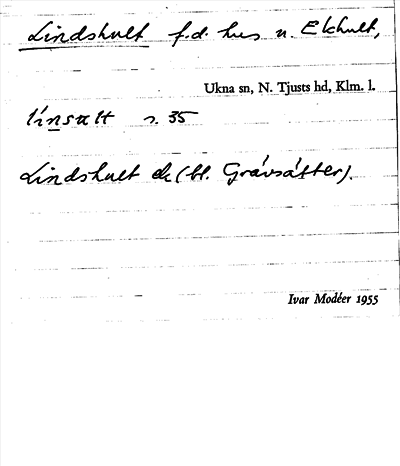 Lindshult f.d. hus u. Ekhult,
Ukna sn, N. Tjusts hd, Klm. l.
línsɑlt s. 35
Lindshult dk (bl. Gråvsåtter).
Ivar Modéer 1955